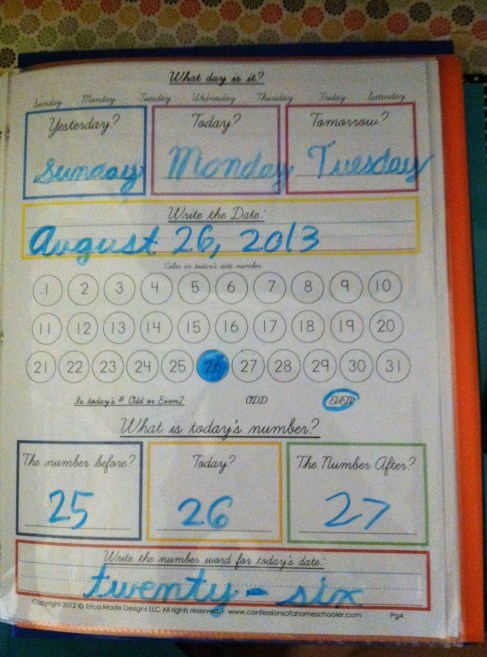 What day is it?
Sunday Monday Tuesday Wednesday Thursday Friday Saturday
Yesterday? Today? Tomorrow?
Sunday Monday Tuesday
Write the Date:
August 26, 2013
Color in today's date number:
1 2 3 4 5 6 7 8 9 10
11 12 13 14 15 16 17 18 19 20
21 22 23 24 25 26 27 28 29 30 31
Is today's # Odd or Even? ODD EVEN
What is today's number?
The number before? Today? The Number After?
25 26 27
Write the number word for today's date:
twenty-six
Copyright 2012 © Erica Made Designs LLC All rights reserved www.confessionsofahomeschooler.com Pg4